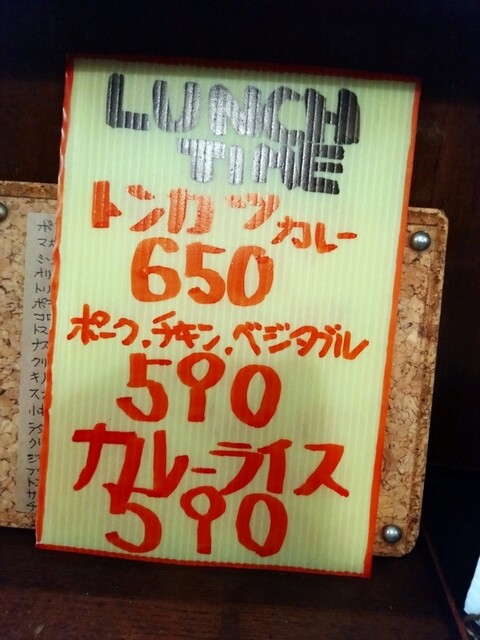 LUNCH
TIME
トンカツカレー
650
ポーク,チキン,ベジタブル
590
カレーライス
590